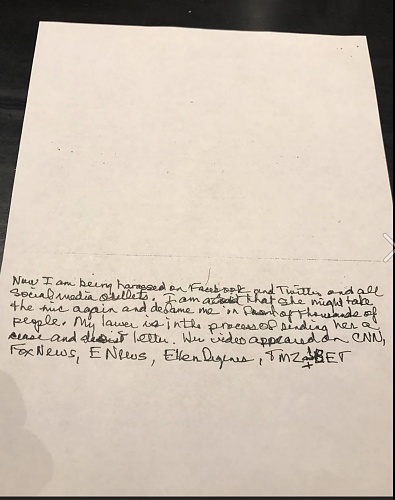 Now I am being harassed on Facebook and Twitter and all
social media outlets. I am afraid that she might take
the mic again and defame me in front of thousands of
people. My lawer is in the process of sending her a
cease and desist letter. Her video appeared on CNN,
Fox News, E News, Ellen Degenes, TMZ & BET